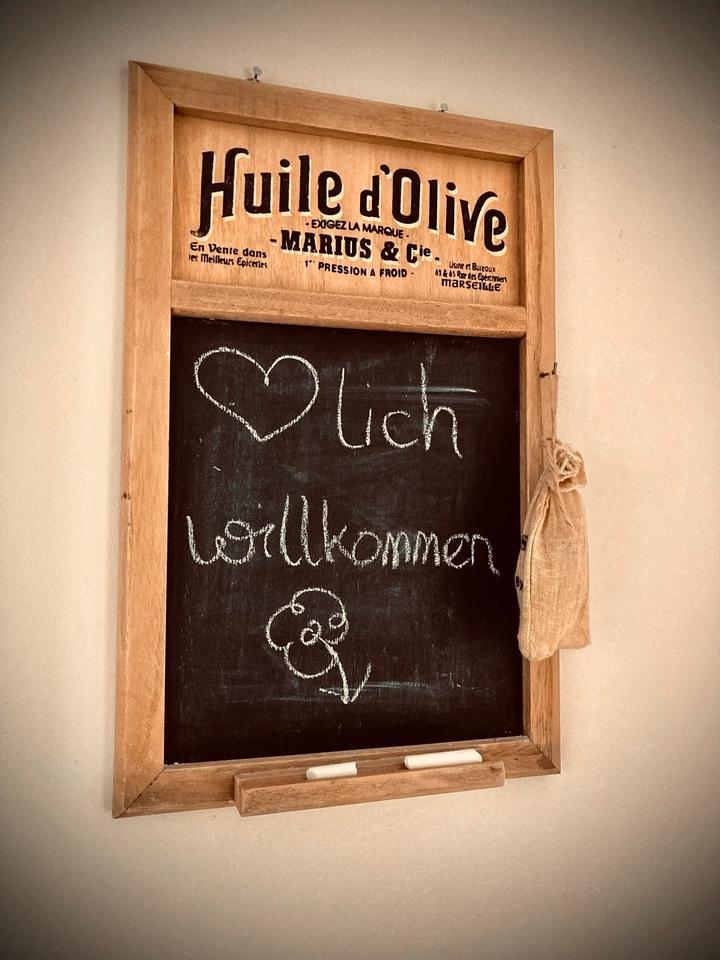 Huile d'Olive
- EXIGEZ LA MARQUE -
- MARIUS & Cie -
1re PRESSION A FROID -
En Vente dans
les Meilleurs Epiceries
Usine et Bureaux
63 & 65 Rue des Eperonniers
MARSEILLE
♡lich
willkommen